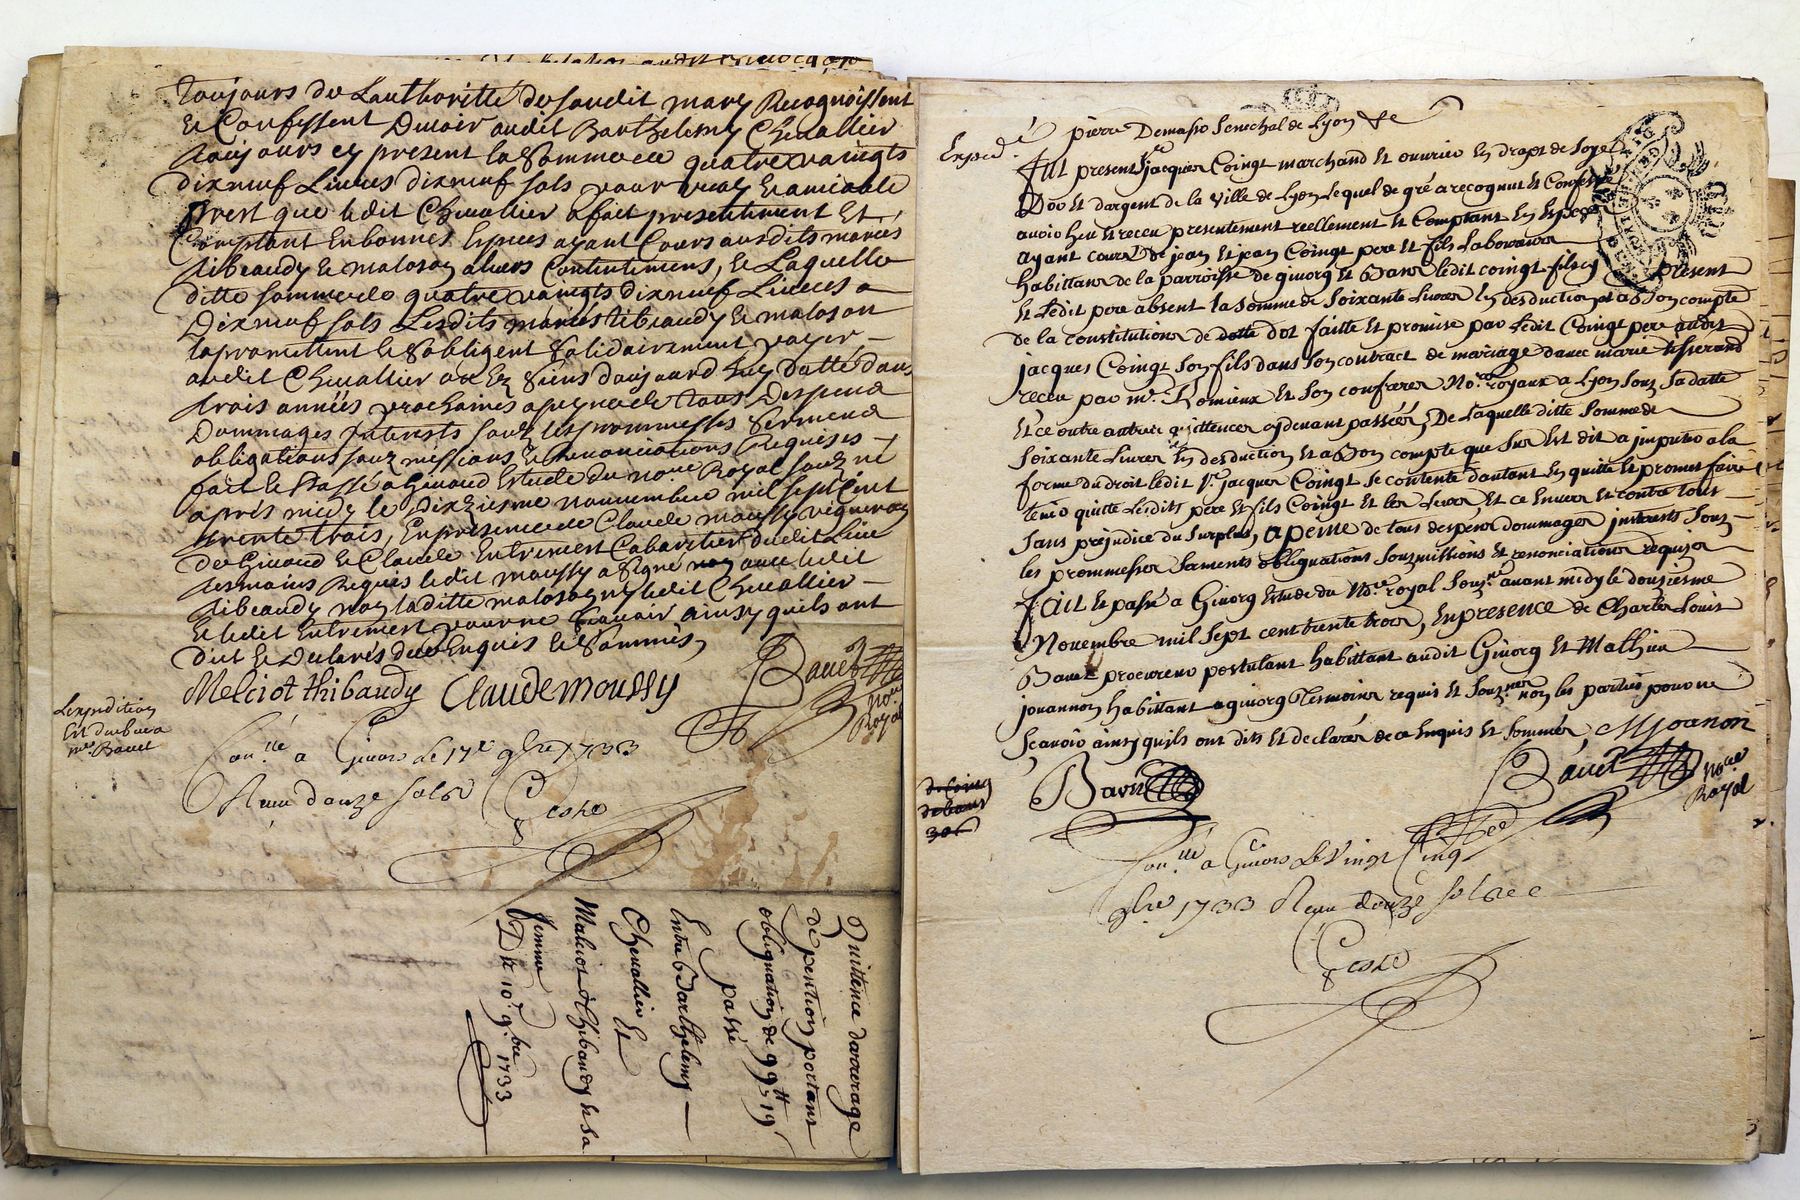 Toujours de Lauthoritté desondit mary Recognoissent
Et Confessent Devoir audit Barthelemy Chevallier
aussy present la Somme de quatre vaingts
dixneuf Livres dixneuf sols pour amiable
prest que ledit Chevallier a fait presentement Et
Comptant En bonnes Espèces ayant Cours ausdits mariés
tibeaudy Et maloson aleurs Contentement, Et Laquelle
ditte somme de quatre vaingts dixneuf Livres
Dixneuf sols Lesdits mariés tibeaudy Et maloson
lapromettent Et Sobligent Solidairement payer
audit Chevallier aux siens daujourdhuy datte dans
trois années prochaines apeyne de tous Despend
Dommages Interests souz les prommesses Serment
obligations souzmissions Et renonciations Requises
fait Et Passé a Givord Estude du no.re Royal souz.né
apres midy le Dixiesme nouvembre mil sept Cent
trente trois, En presence de Claude moussy vigneron
de Givord Et Claude Entremont Cabarttier dudit Lieu
tesmoins Requis ledit moussy a Signé avec ledit
tibeaudy non laditte maloson ny ledit Chevallier
Et ledit Entremont pour ne scavoir ainsy quils ont
dict Et Declarés de ce Enquis Et Sommés
Melciot thibaudy Claude moussy
Bauet no.re Royal
Lexpedition
Est deubue a
m.re Bauet
Con.llé a Givors le 17e 9bre 1733
Reçu douze sols
Quittence darrerage
de pention portant
obligation de 99tt 19
passé
Entre Barthelemy
Chevallier Et
Malciot Thibaudy Et sa
femme
Du 10e 9bre 1733
Exped.é
pierre Demasso Senechal de Lyon
Fut present Jacques Coingt marchand Et ouvrier En drapt de Soye
Dor Et dargent de la Ville de Lyon Lequel de gré a recognut Et Confessé
avoir heu Et receu presentement reellement Et Comptant En Especes
ayant cours de jean Et jean Coingt pere Et fils Laboureurs
habittans de la parroisse de givorg Et Bans ledit coingt fils cy present
Et Ledit pere absent la somme de Soixante Livres En desduction Et a Bon compte
de la constitution de dotte dot faitte Et promise par Ledit Coingt pere audit
jacques Coingt son fils dans son contract de mariage davec marie tisserand
receu par m.e Romieux Et son confrere No.res royaux a Lyon souz sa datte
Et ce outre autres quittences cydevant passées, De Laquelle ditte Somme de
Soixante Livres En desduction Et a Bon compte que Sur Est dit a imputer a la
forme du droit Ledit S.r jacques Coingt se contente dautant En quitte Et promet faire
tenir quitte Lesdits pere Et fils Coingt Et les leurs, Et ce Envers Et contre tous
Sans prejudice du Surplus, apeine de tous despens dommages interests souz
les prommesses Sarments obliguations Souzmissions Et renonciations requizes
Fait Et passé a Givorg Estude du No.re royal Souz.né avant midy le douziesme
Novembre mil Sept cent trente trois, En presence de Charles Louis
Bauet procureur postulant habittant audit Givorg Et Mathieu
jouannon habittant a givorg Tesmoins requis Et Souz.nes non les parties pour ne
Scavoir ainsy quils ont dits Et declarés de ce Enquis Et Sommés, MJoanon
Bavet
Bauet no.re Royal
Con.llé a Givors Le Vingt Cinq
9bre 1733 Reçu douze sols